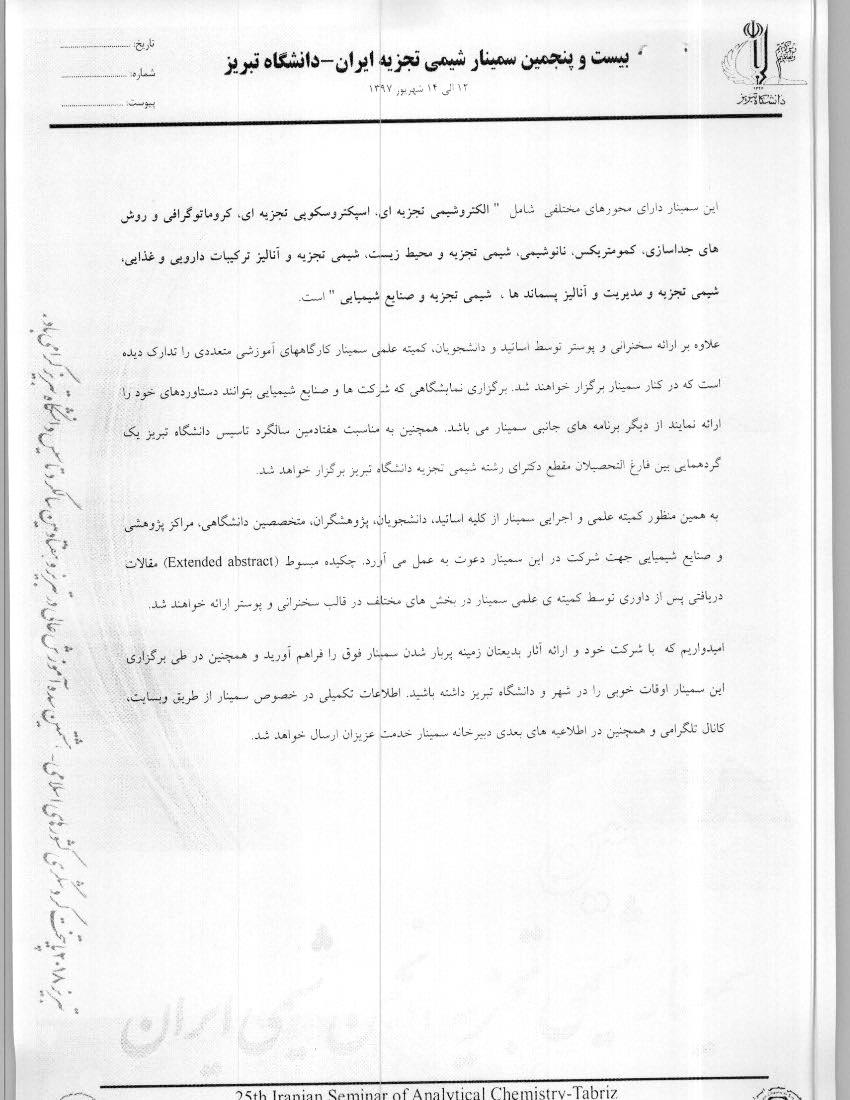 تاریخ: ........................
شماره: ........................
پیوست: ........................
بیست و پنجمین سمینار شیمی تجزیه ایران-دانشگاه تبریز
۱۲ الی ۱۴ شهریور ۱۳۹۷
دانشگاه تبریز
این سمینار دارای محورهای مختلفی شامل " الکتروشیمی تجزیه ای، اسپکتروسکوپی تجزیه ای، کروماتوگرافی و روش
های جداسازی، کمومتریکس، نانوشیمی، شیمی تجزیه و محیط زیست، شیمی تجزیه و آنالیز ترکیبات دارویی و غذایی،
شیمی تجزیه و مدیریت و آنالیز پسماند ها ، شیمی تجزیه و صنایع شیمیایی " است.
علاوه بر ارائه سخنرانی و پوستر توسط اساتید و دانشجویان، کمیته علمی سمینار کارگاههای آموزشی متعددی را تدارک دیده
است که در کنار سمینار برگزار خواهند شد. برگزاری نمایشگاهی که شرکت ها و صنایع شیمیایی بتوانند دستاوردهای خود را
ارائه نمایند از دیگر برنامه های جانبی سمینار می باشد. همچنین به مناسبت هفتادمین سالگرد تاسیس دانشگاه تبریز یک
گردهمایی بین فارغ التحصیلان مقطع دکترای رشته شیمی تجزیه دانشگاه تبریز برگزار خواهد شد.
به همین منظور کمیته علمی و اجرایی سمینار از کلیه اساتید، دانشجویان، پژوهشگران، متخصصین دانشگاهی، مراکز پژوهشی
و صنایع شیمیایی جهت شرکت در این سمینار دعوت به عمل می آورد. چکیده مبسوط (Extended abstract) مقالات
دریافتی پس از داوری توسط کمیته ی علمی سمینار در بخش های مختلف در قالب سخنرانی و پوستر ارائه خواهند شد.
امیدواریم که با شرکت خود و ارائه آثار بدیعتان زمینه پربار شدن سمینار فوق را فراهم آورید و همچنین در طی برگزاری
این سمینار اوقات خوبی را در شهر و دانشگاه تبریز داشته باشید. اطلاعات تکمیلی در خصوص سمینار از طریق وبسایت،
کانال تلگرامی و همچنین در اطلاعیه های بعدی دبیرخانه سمینار خدمت عزیزان ارسال خواهد شد.
تبریز ۲۰۱۸ پایتخت گردشگری کشورهای اسلامی - هشتمین سده آموزش عالی در تبریز و هفتادمین سالگرد تاسیس دانشگاه تبریز گرامی باد.
25th Iranian Seminar of Analytical Chemistry-Tabriz